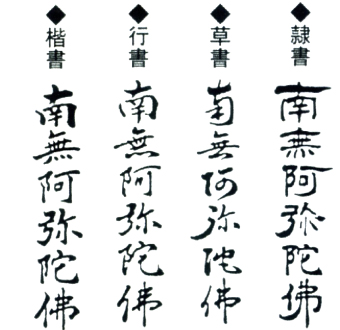 ◆隸書
南無阿弥陀佛
◆草書
南無阿弥陀佛
◆行書
南無阿弥陀佛
◆楷書
南無阿弥陀佛